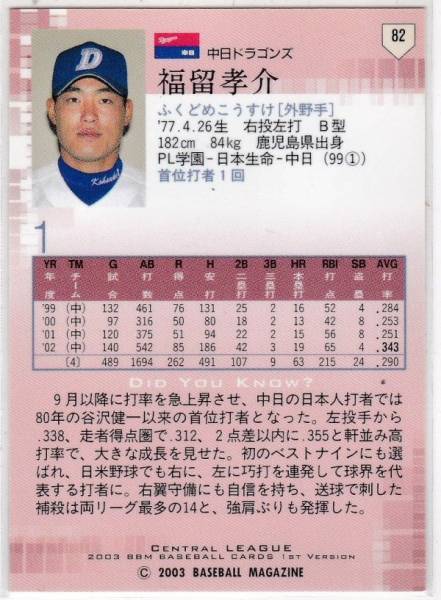 82
Dragons
中日
中日ドラゴンズ
福留孝介
ふくどめこうすけ[外野手]
'77.4.26生 右投左打 B型
182cm 84kg 鹿児島県出身
PL学園-日本生命-中日(99①)
首位打者1回
1
YR TM G AB R H 2B 3B HR RBI SB AVG
年度 チーム 試合 打数 得点 安打 二塁打 三塁打 本塁打 打点 盗塁 打率
'99 (中) 132 461 76 131 25 2 16 52 4 .284
'00 (中) 97 316 50 80 18 2 13 42 8 .253
'01 (中) 120 375 51 94 22 2 15 56 8 .251
'02 (中) 140 542 85 186 42 3 19 65 4 .343
[4] 489 1694 262 491 107 9 63 215 24 .290
DID YOU KNOW?
9月以降に打率を急上昇させ、中日の日本人打者では
80年の谷沢健一以来の首位打者となった。左投手から
.338、走者得点圏で.312、2点差以内に.355と軒並み高
打率で、大きな成長を見せた。初のベストナインにも選
ばれ、日米野球でも右に、左に巧打を連発して球界を代
表する打者に。右翼守備にも自信を持ち、送球で刺した
補殺は両リーグ最多の14と、強肩ぶりも発揮した。
CENTRAL LEAGUE
2003 BBM BASEBALL CARDS 1ST VERSION
© 2003 BASEBALL MAGAZINE